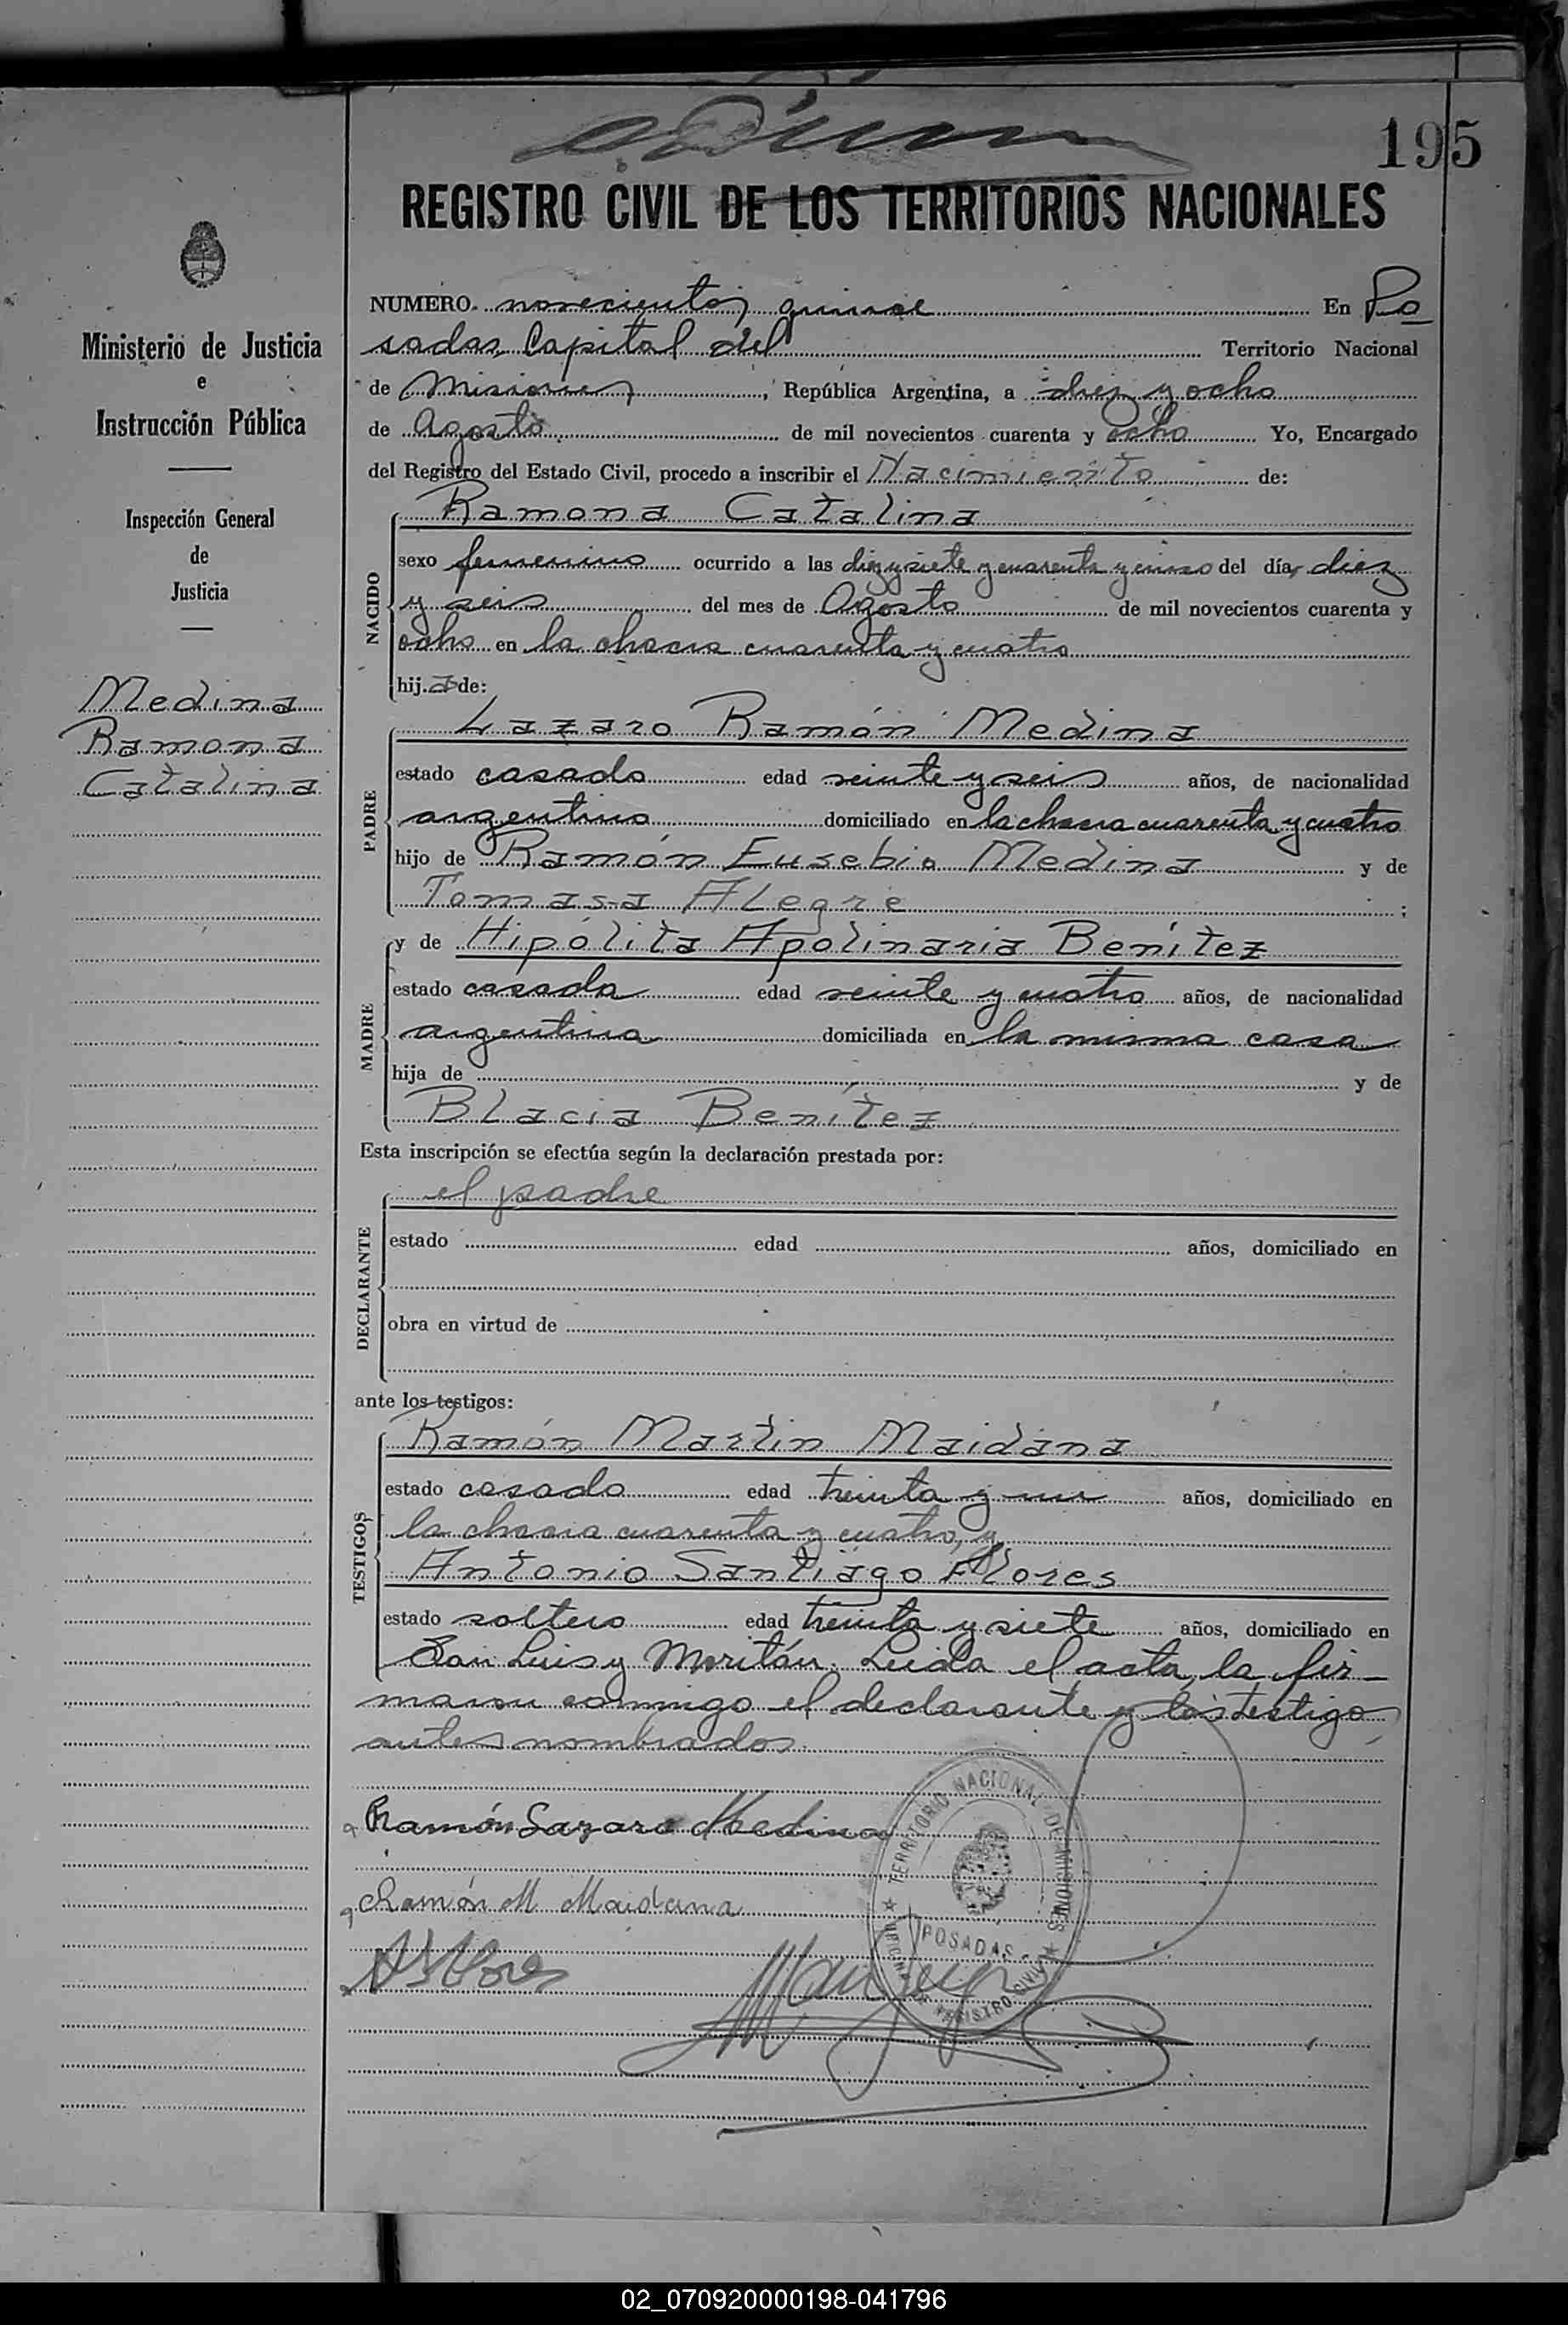 195
REGISTRO CIVIL DE LOS TERRITORIOS NACIONALES
Ministerio de Justicia
e
Instrucción Pública
Inspección General
de
Justicia
Medina
Ramona
Catalina
NUMERO novecientos quince En Po
sadas Capital del Territorio Nacional
de Misiones, República Argentina, a diez y ocho
de Agosto de mil novecientos cuarenta y ocho Yo, Encargado
del Registro del Estado Civil, procedo a inscribir el Nacimiento de:
NACIDO
Ramona Catalina
sexo femenino ocurrido a las diez y siete y cuarenta y cinco del día diez
y seis del mes de Agosto de mil novecientos cuarenta y
ocho en la chacra cuarenta y cuatro
hij a de:
PADRE
Lazaro Ramón Medina
estado casado edad veinte y seis años, de nacionalidad
argentino domiciliado en la chacra cuarenta y cuatro
hijo de Ramón Eusebio Medina y de
Tomasa Alegre ;
MADRE
y de Hipólita Apolinaria Benítez
estado casada edad veinte y cuatro años, de nacionalidad
argentina domiciliada en la misma casa
hija de y de
Blacia Benítez
Esta inscripción se efectúa según la declaración prestada por:
DECLARANTE
el padre
estado edad años, domiciliado en
obra en virtud de
ante los testigos:
TESTIGOS
Ramón Martin Maidana
estado casado edad treinta y un años, domiciliado en
la chacra cuarenta y cuatro, y
Antonio Santiago Flores
estado soltero edad treinta y siete años, domiciliado en
San Luis y Moritán. Leida el acta, la fir-
maron conmigo el declarante y los testigos
antes nombrados
Ramón Lazaro Medina
Ramón M Maidana
A S Flores
TERRITORIO NACIONAL DE MISIONES
POSADAS
REGISTRO CIVIL
02_070920000198-041796